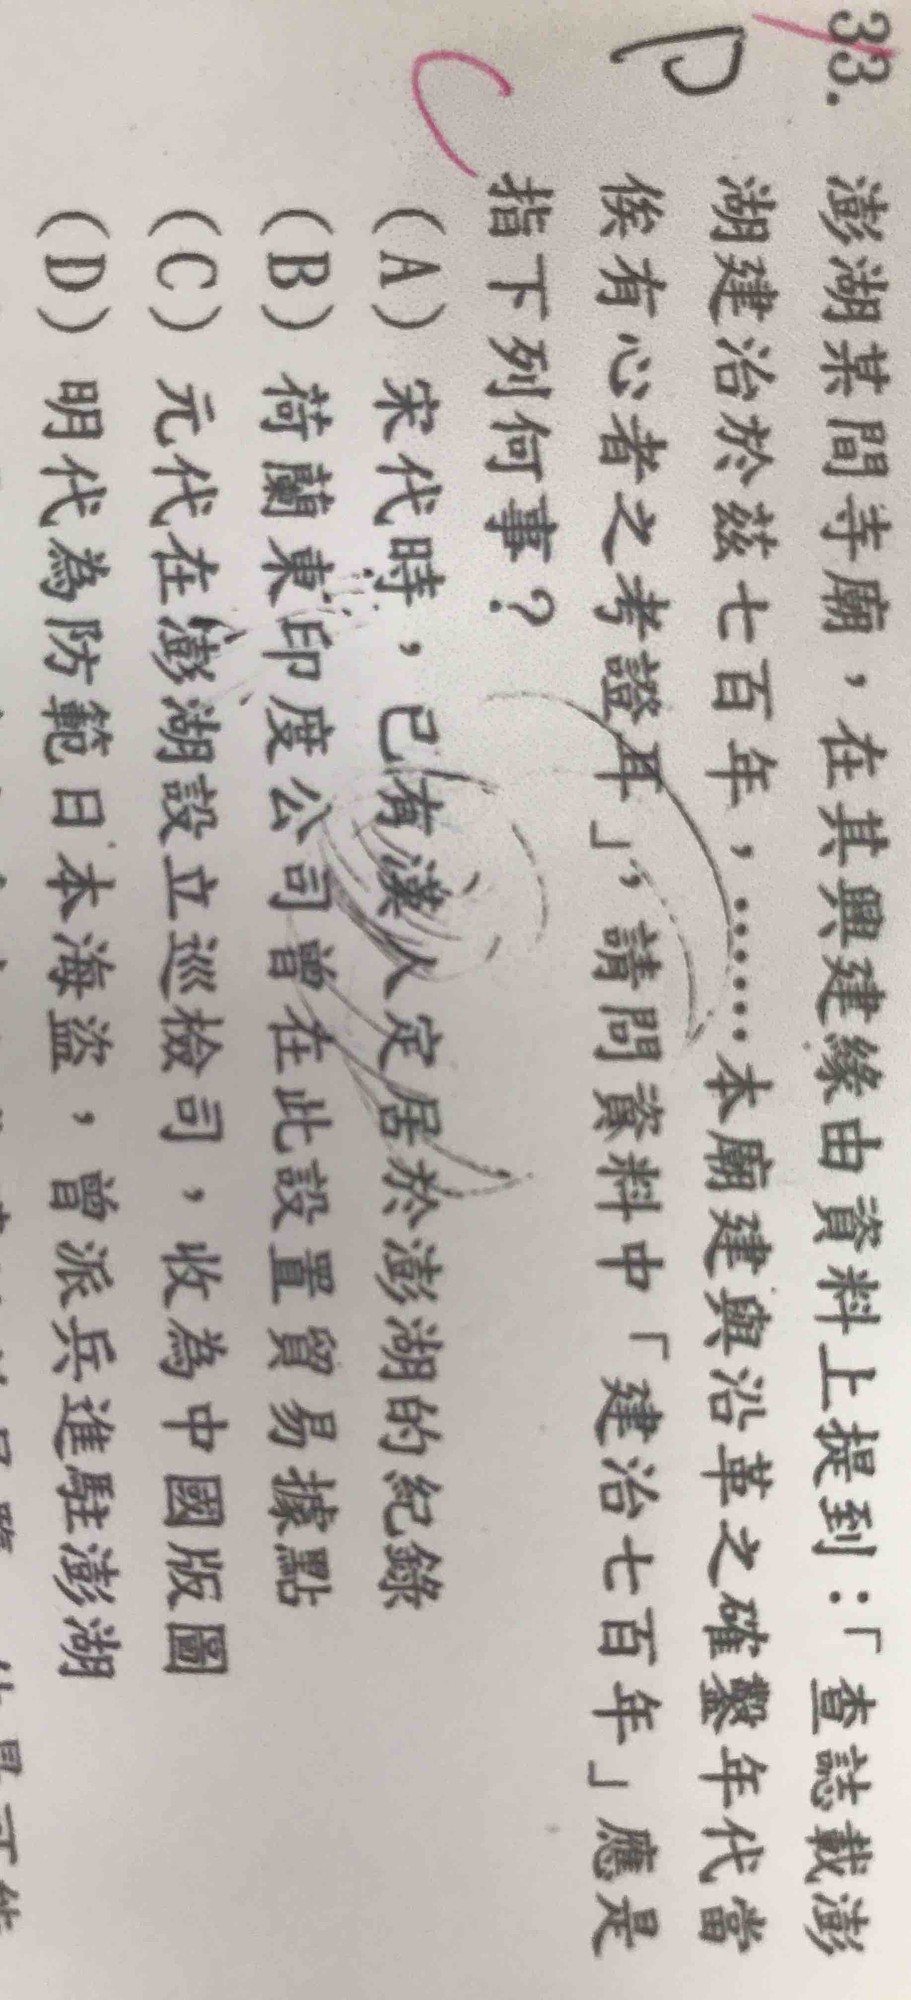 33. 澎湖某間寺廟，在其興建緣由資料上提到：「查誌載澎
湖建治於茲七百年，……本廟建與沿革之確鑿年代當
俟有心者之考證耳」，請問資料中「建治七百年」應是
指下列何事？
(A) 宋代時，已有漢人定居於澎湖的紀錄
(B) 荷蘭東印度公司曾在此設置貿易據點
(C) 元代在澎湖設立巡檢司，收為中國版圖
(D) 明代為防範日本海盜，曾派兵進駐澎湖
D
C